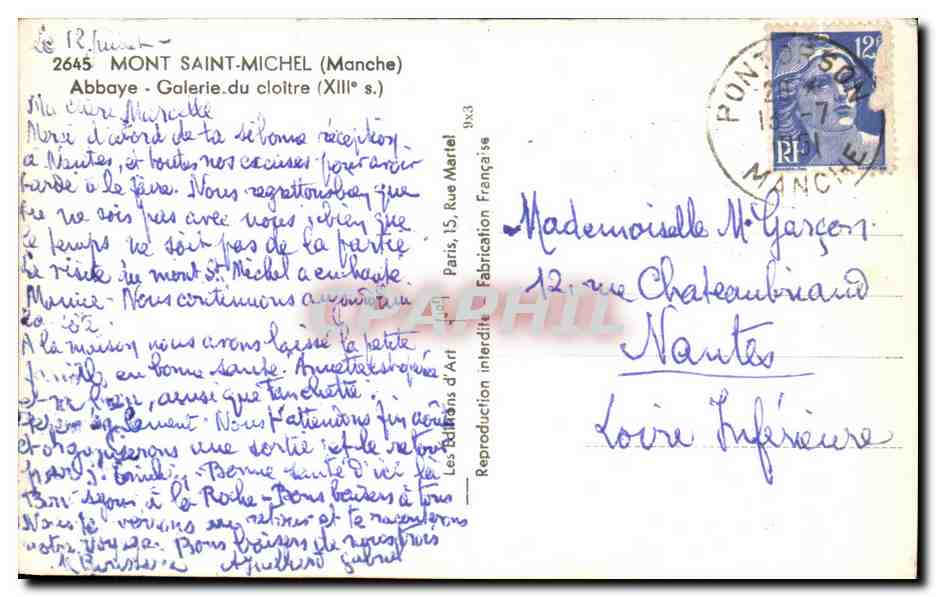 Le 12 Juillet -
2645 MONT SAINT-MICHEL (Manche)
Abbaye - Galerie du cloître (XIIIe s.)
Ma chère Marcelle
Merci d'abord de ta si bonne réception
à Nantes, et toutes nos excuses pour avoir
tardé à le faire. Nous regrettons bien que
tu ne sois pas avec nous, bien que
le temps ne soit pas de la partie
La visite du mont St Michel a enchanté
Maurice - Nous continuons
la côte
A la maison nous avons laissé la petite
famille en bonne santé. opérée
et va bien, ainsi que
également - Nous t'attendons fin août
et organiserons une sortie et le retour
Bonne santé d'ici là
Bon séjour à la Roche - Bons baisers à tous
Nous te verrons au retour et te raconterons
notre voyage. Bons baisers de nous trois
Gabriel
Les Editions d'Art Paris, 15, Rue Martel 9x3
Reproduction interdite Fabrication Française
CPAPHIL
12F
RF
PONTORSON
12 -7
51
MANCHE
Mademoiselle M. Garçon
12, rue Chateaubriand
Nantes
Loire Inférieure